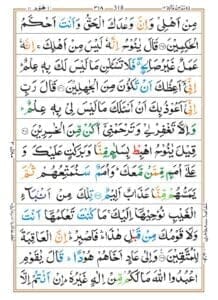 مِنْ اَهْلِیْ وَاِنَّ وَعْدَكَ الْحَقُّ وَاَنْتَ اَحْكَمُ
الْحٰكِمِیْنَ قَالَ یٰنُوْحُ اِنَّهٗ لَیْسَ مِنْ اَهْلِكَ ۚ اِنَّهٗ
عَمَلٌ غَیْرُ صَالِحٍ فَلَا تَسْـَٔلْنِ مَا لَیْسَ لَكَ بِهٖ عِلْمٌ ؕ
اِنِّیْۤ اَعِظُكَ اَنْ تَكُوْنَ مِنَ الْجٰهِلِیْنَ قَالَ رَبِّ
اِنِّیْۤ اَعُوْذُ بِكَ اَنْ اَسْـَٔلَكَ مَا لَیْسَ لِیْ بِهٖ عِلْمٌ ؕ
وَاِلَّا تَغْفِرْ لِیْ وَتَرْحَمْنِیْۤ اَكُنْ مِّنَ الْخٰسِرِیْنَ
قِیْلَ یٰنُوْحُ اهْبِطْ بِسَلٰمٍ مِّنَّا وَبَرَكٰتٍ عَلَیْكَ وَ
عَلٰۤی اُمَمٍ مِّمَّنْ مَّعَكَ ؕ وَاُمَمٌ سَنُمَتِّعُهُمْ ثُمَّ
یَمَسُّهُمْ مِّنَّا عَذَابٌ اَلِیْمٌ تِلْكَ مِنْ اَنْۢبَآءِ
الْغَیْبِ نُوْحِیْهَاۤ اِلَیْكَ ۚ مَا كُنْتَ تَعْلَمُهَاۤ اَنْتَ
وَلَا قَوْمُكَ مِنْ قَبْلِ هٰذَا ۛ فَاصْبِرْ ۛ اِنَّ الْعَاقِبَةَ
لِلْمُتَّقِیْنَ وَاِلٰی عَادٍ اَخَاهُمْ هُوْدًا ؕ قَالَ یٰقَوْمِ
اعْبُدُوا اللّٰهَ مَا لَكُمْ مِّنْ اِلٰهٍ غَیْرُهٗ ؕ اِنْ اَنْتُمْ اِلَّا